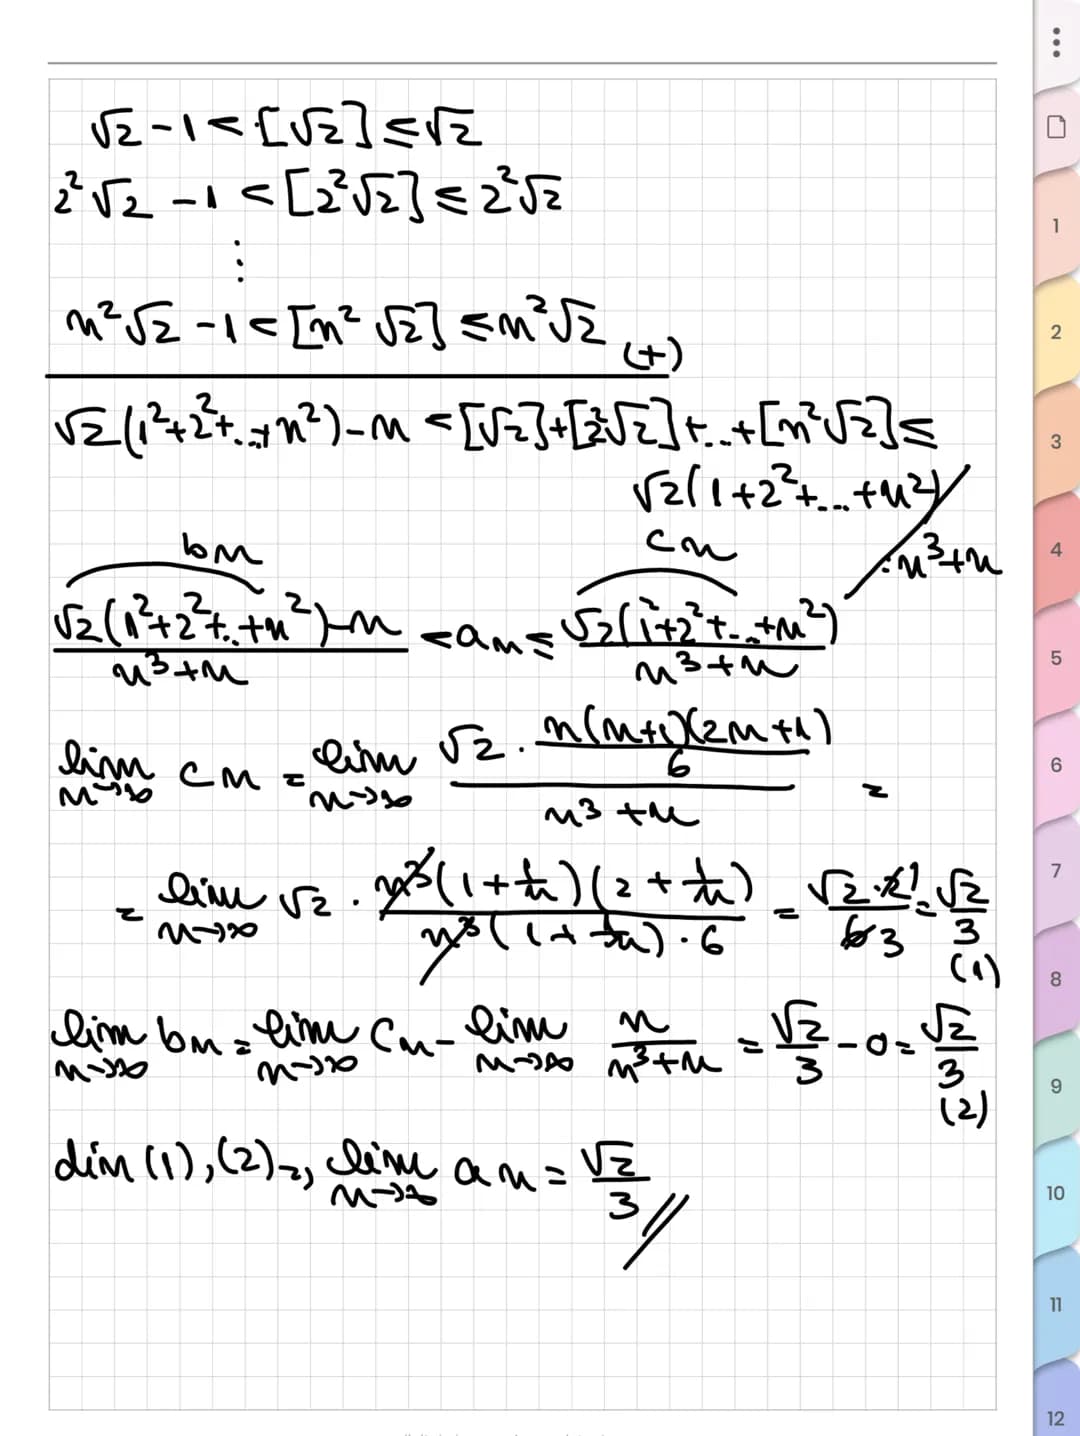 √2 - 1 < [√2] ≤ √2
2²√2 - 1 < [2²√2] ≤ 2²√2
⋮
n²√2 - 1 < [n²√2] ≤ n²√2 (+)
√2(1²+2²+..+n²) - n < [√2]+[2²√2]+..+[n²√2] ≤
√2(1+2²+...+n²) / :n³+n
bn cn
√2(1²+2²+..+n²)-n / n³+n < an ≤ √2(1²+2²+..+n²) / n³+n
lim n→∞ cn = lim n→∞ √2 · n(n+1)(2n+1)/6 / n³+n =
= lim n→∞ √2 · n³(1+1/n)(2+1/n) / n³(1+1/n)·6 = √2·2 1 / 6 3 = √2/3 (1)
lim n→∞ bn = lim n→∞ cn - lim n→∞ n/n³+n = √2/3 - 0 = √2/3 (2)
din (1),(2) => lim n→∞ an = √2/3 //
1
2
3
4
5
6
7
8
9
10
11
12